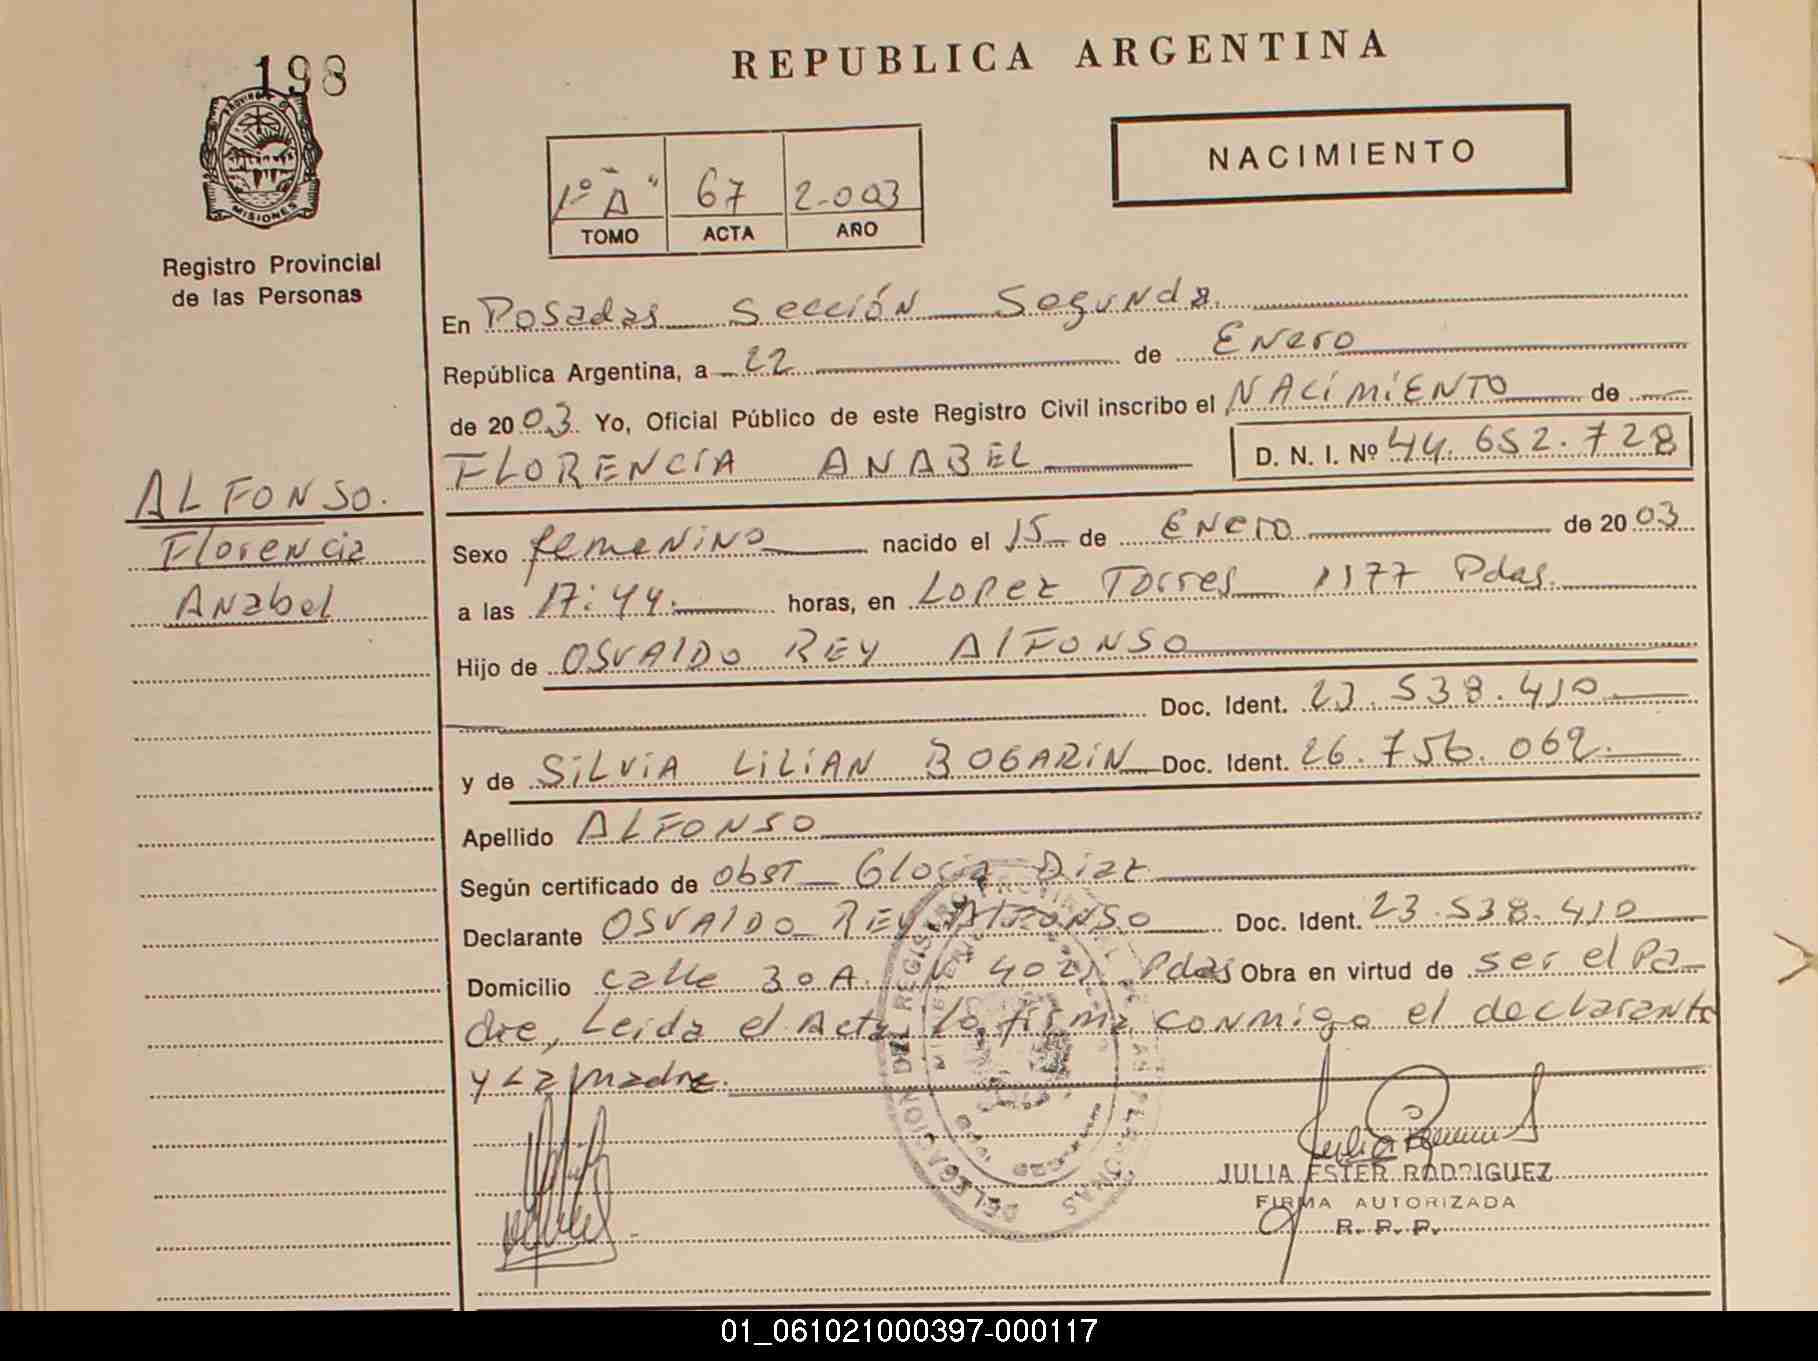 198
REPUBLICA ARGENTINA
NACIMIENTO
1º "A" 67 2.003
TOMO ACTA AÑO
MISIONES
Registro Provincial
de las Personas
En Posadas Sección Segunda
República Argentina, a 22 de Enero
de 2003 Yo, Oficial Público de este Registro Civil inscribo el NACIMIENTO de
FLORENCIA ANABEL D. N. I. Nº 44.652.728
ALFONSO.
Florencia
Anabel
Sexo femenino nacido el 15 de Enero de 2003
a las 17:44. horas, en Lopez Torres 1177 Pdas.
Hijo de OSVALDO REY ALFONSO
Doc. Ident. 23.538.410
y de SILVIA LILIAN BOGARIN Doc. Ident. 26.756.062.
Apellido ALFONSO
Según certificado de obst Gloria Diaz
Declarante OSVALDO REY ALFONSO Doc. Ident. 23.538.410
Domicilio calle 30A. Nº Pdas Obra en virtud de ser el Pa-
dre, Leida el Acta lo firma conmigo el declarante
y La madre.
JULIA ESTER RODRIGUEZ
FIRMA AUTORIZADA
R. P. P.
01_061021000397-000117